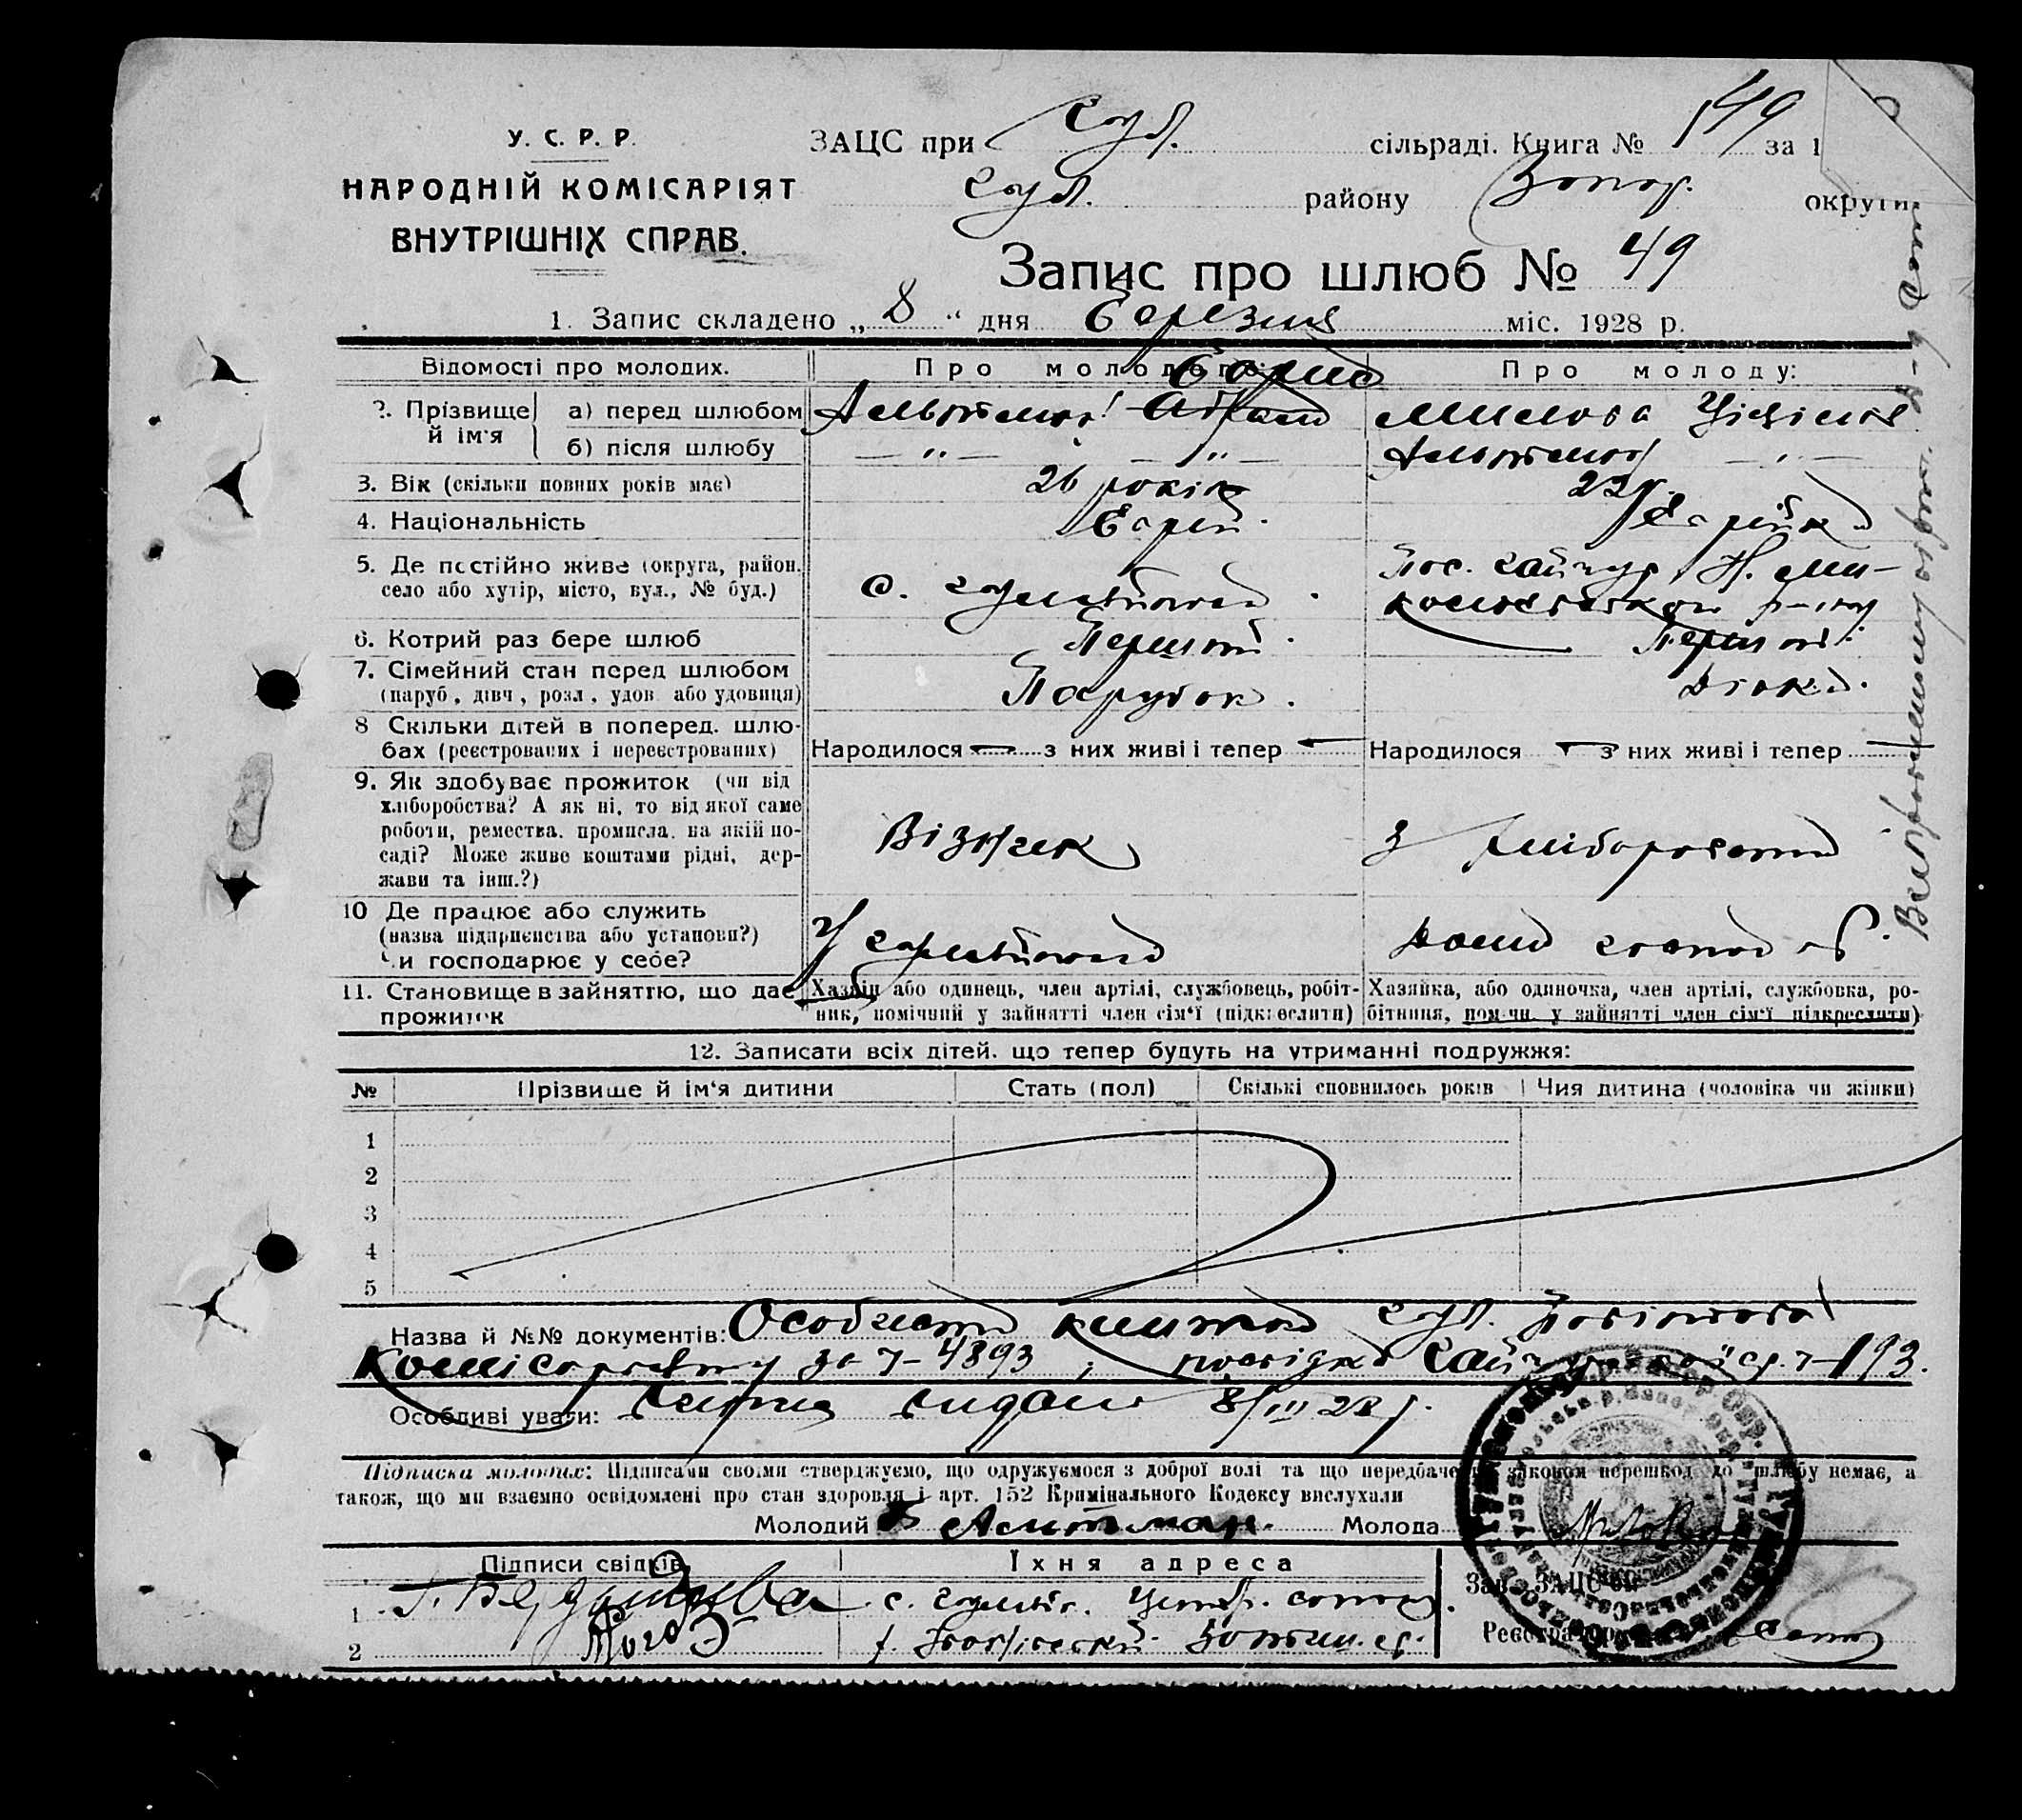 У. С. Р. Р.
НАРОДНІЙ КОМІСАРІЯТ
ВНУТРІШНІХ СПРАВ.
ЗАЦС при Гул. сільраді. Книга № 149 за 1
Гул. району Запор. округи
Запис про шлюб № 49
1. Запис складено „ 8 “ дня березня міс. 1928 р.
Відомості про молодих. Про молодого: Про молоду:
Борис
2. Прізвище й ім'я а) перед шлюбом Альтман Милова
б) після шлюбу — „ — — „ — Альтман — „ —
3. Вік (скільки повних років має) 26 років 22 р.
4. Національність Єврей. Єврейка
5. Де постійно живе (округа, район, село або хутір, місто, вул., № буд.) с. Гуляйполе. Пос. Гайчур, Н. Миколаївського р-ну
6. Котрий раз бере шлюб Перший. Перший.
7. Сімейний стан перед шлюбом (паруб., дівч., розл., удов. або удовиця) Парубок. Дівка.
8 Скільки дітей в поперед. шлюбах (реєстрованих і нереєстрованих) Народилося — з них живі і тепер — Народилося — з них живі і тепер —
9. Як здобуває прожиток (чи від
хліборобства? А як ні, то від якої саме
роботи, ремества, промисла, на якій посаді? Може живе коштами рідні, держави та інш.?) Візник З хліборобства
10 Де працює або служить
(назва підприємства або установи?)
Чи господарює у себе? У Гуляйполі Дома господ.
11. Становище в занятті, що дає прожиток Хазяїн або одинець, член артілі, службовець, робітник, помічний у зайнятті член сім'ї (підкреслити) Хазяйка, або одиночка, член артілі, службовка, робітниця, помічн. у зайнятті член сім'ї підкреслити)
12. Записати всіх дітей, що тепер будуть на утриманні подружжя:
№ Прізвище й ім'я дитини Стать (пол) Скількі сповнилось років Чия дитина (чоловіка чи жінки)
1
2
3
4
5
Назва й №№ документів: Особиста книжка Гул.
Комісаріату за ч– 4893; посвідка Гайчурської ср. ч– 193.
Особливі уваги: 8/III 28 р.
Підписка молодих: Підписами своїми стверджуємо, що одружуємося з доброї волі та що передбачених законом перешкод до шлюбу немає, а
також, що ми взаємно освідомлені про стан здоровля і арт. 152 Кримінального Кодексу вислухали
Молодий Б Альтман. Молода Милова
Підписи свідків Їхня адреса
1 с. Гуляйп.
2
Зав. ЗАЦС'ом
Реєстратор